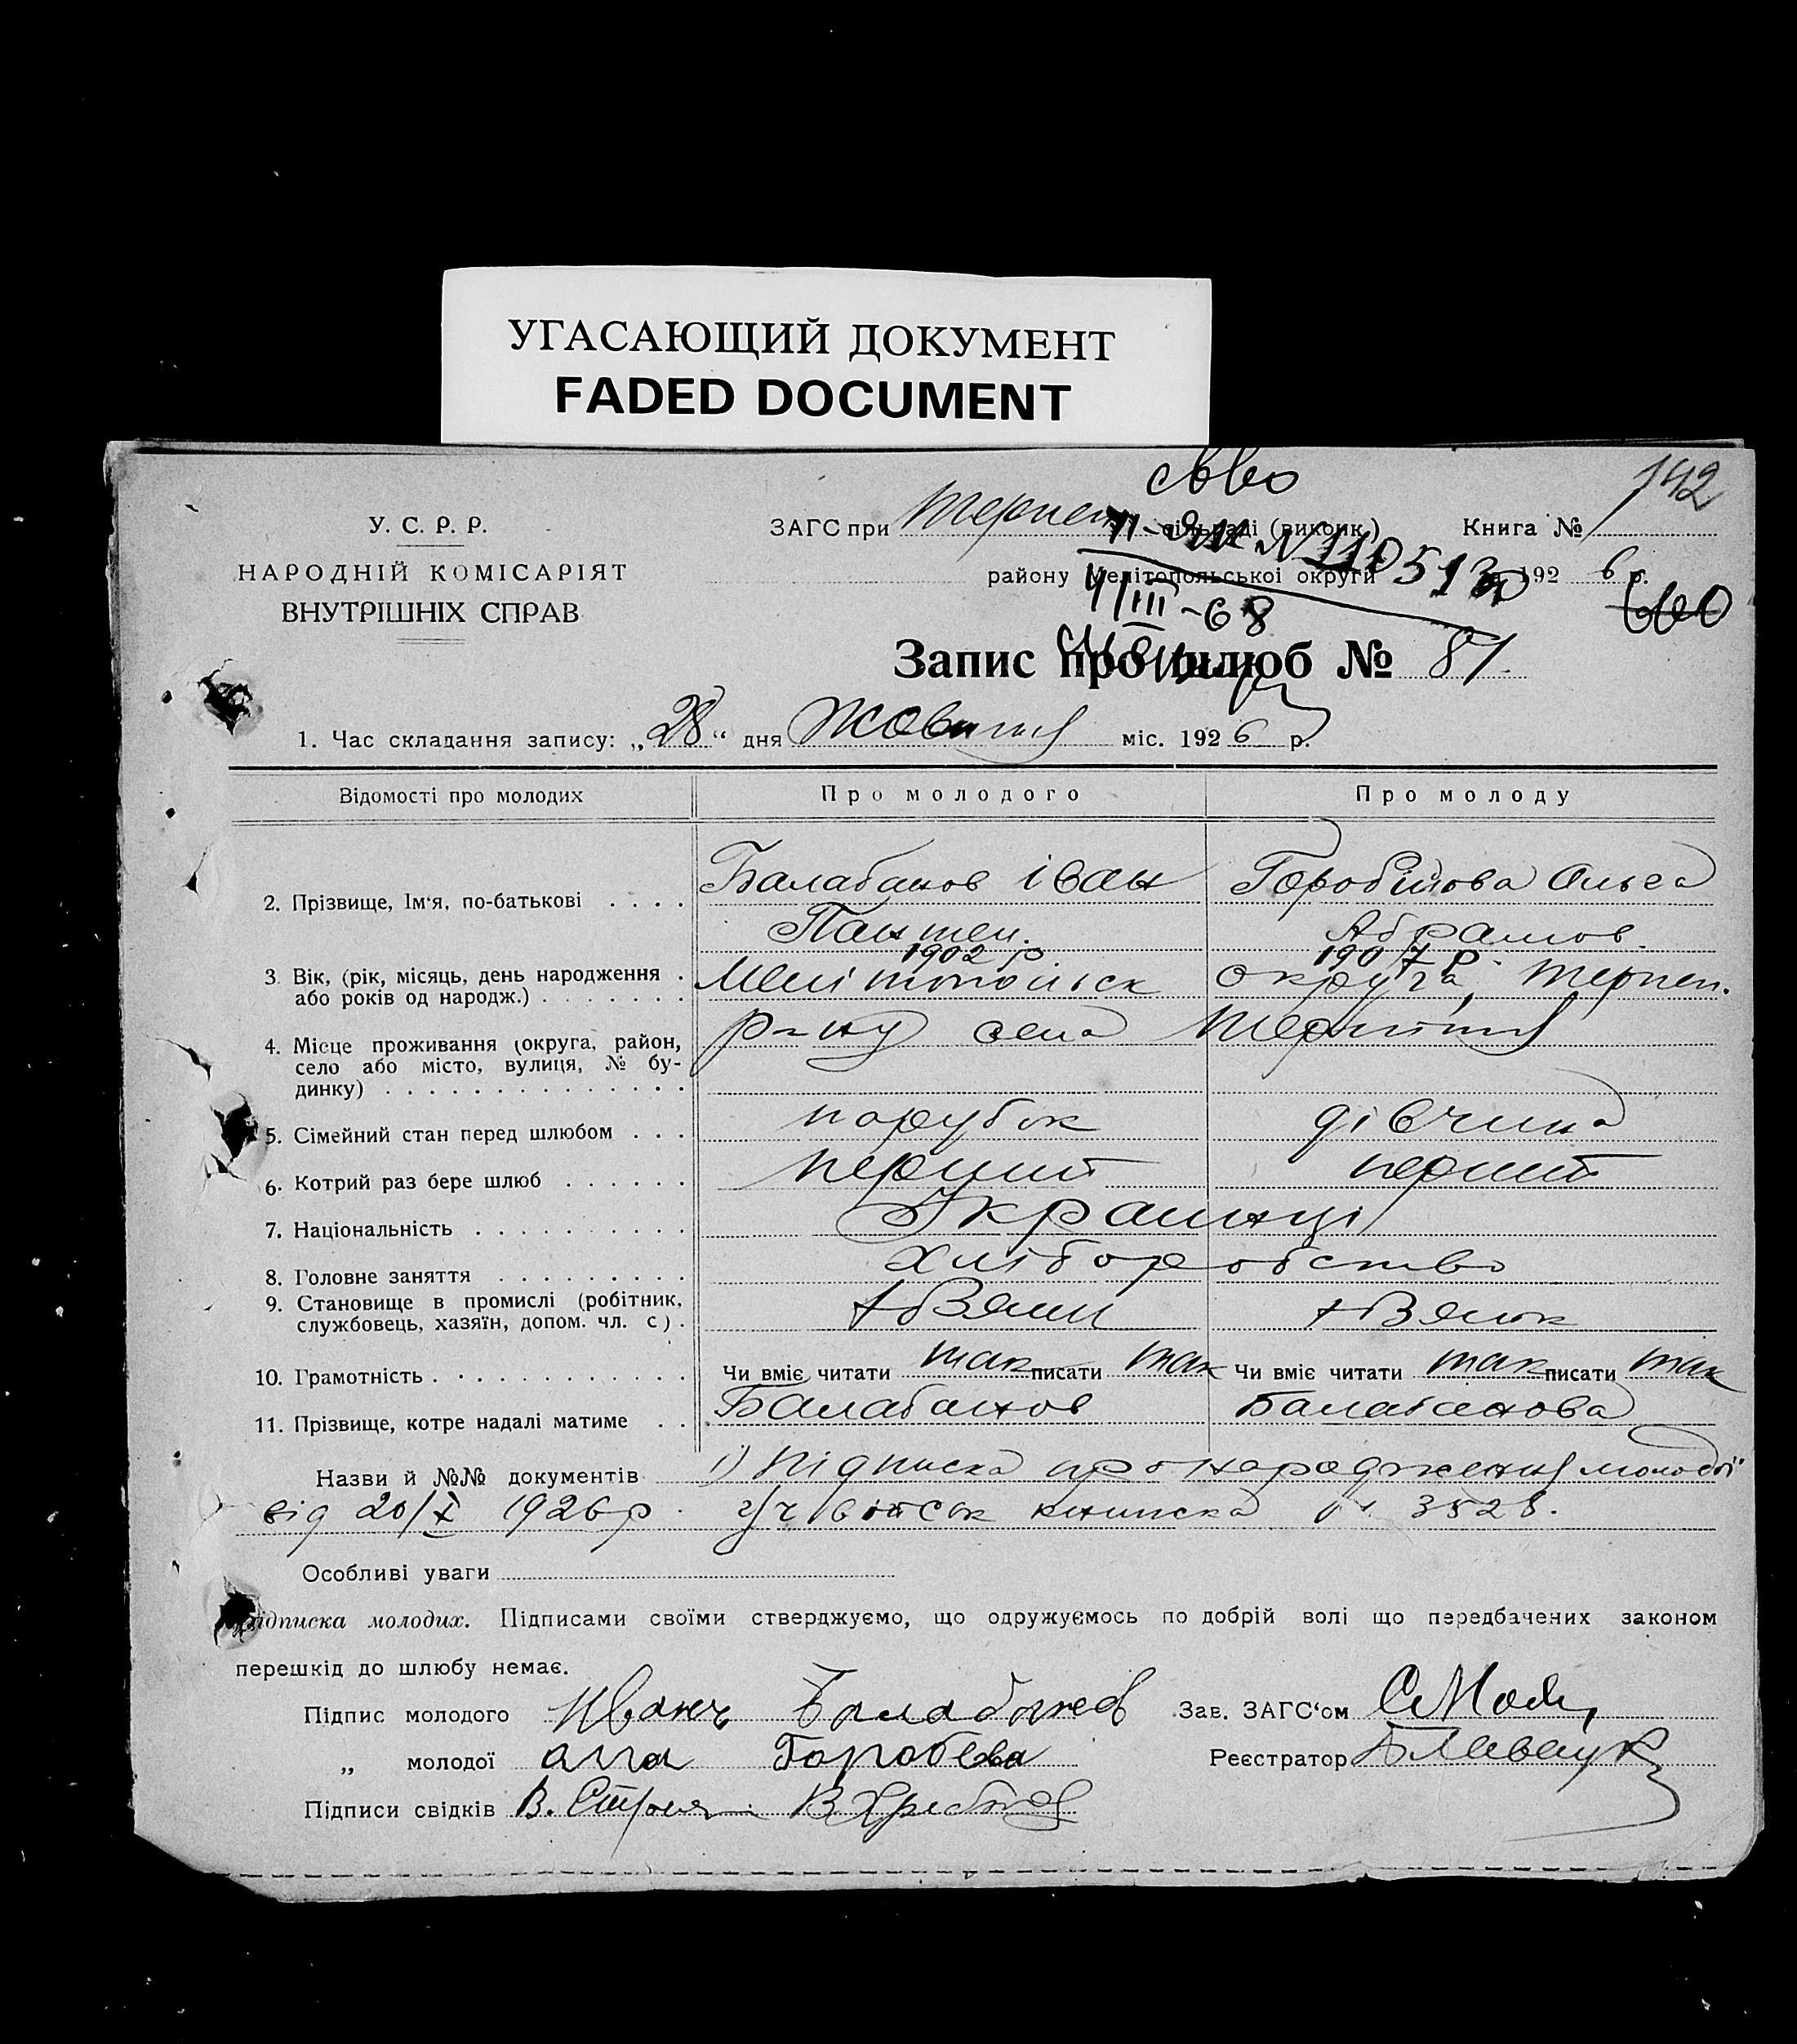 УГАСАЮЩИЙ ДОКУМЕНТ
FADED DOCUMENT
142
У. С. Р. Р.
НАРОДНІЙ КОМІСАРІЯТ
ВНУТРІШНІХ СПРАВ
ЗАГС при Терпен сільраді (виконк.) Книга №
району Мелітопольської округи 1926 р.
Запис про шлюб № 87
1. Час складання запису: „28“ дня Жовтня міс. 1926 р.
Відомості про молодих Про молодого Про молоду
2. Прізвище, Ім‘я, по-батькові Балабанов Іван Горобйова Ольга
Пантел. Абрамов.
3. Вік, (рік, місяць, день народження або років од народж.) 1902 р. 1907 р.
Мелітопольск округа, Терпен.
4. Місце проживання (округа, район, село або місто, вулиця, № будинку) р-ну села Терпіння
5. Сімейний стан перед шлюбом парубок дівчина
6. Котрий раз бере шлюб перший перший
7. Національність Українці
8. Головне заняття хліборобство
9. Становище в промислі (робітник, службовець, хазяїн, допом. чл. с).
10. Грамотність Чи вміє читати так писати так Чи вміє читати так писати так
11. Прізвище, котре надалі матиме Балабанов Балабанова
Назви й №№ документів 1) Підписка про народження молодої
від 20/X 1926 р. книжка № 3528.
Особливі уваги
Підписка молодих. Підписами своїми стверджуємо, що одружуємось по добрій волі що передбачених законом
перешкід до шлюбу немає.
Підпис молодого Иванъ Балабанов Зав. ЗАГС‘ом
„ молодої Горобева Реєстратор
Підписи свідків В.